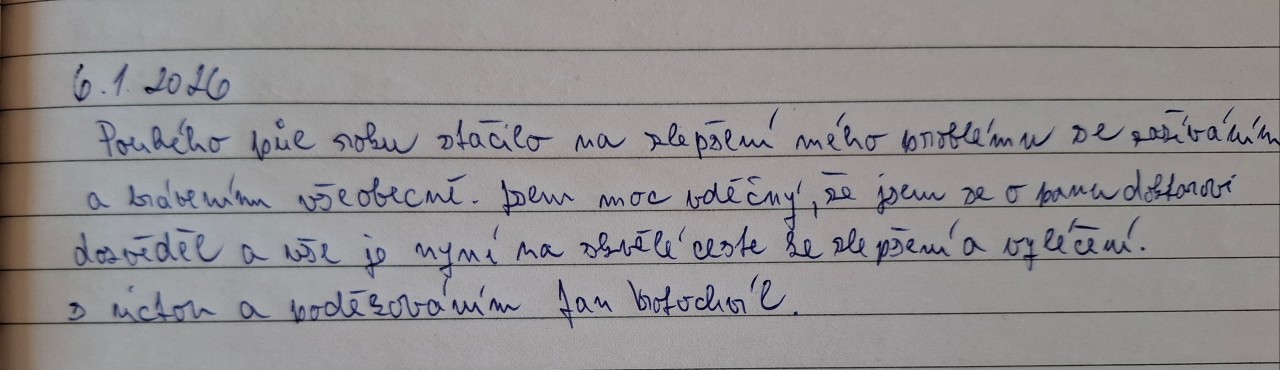 6.1.2026
Pouhého půl roku stačilo na zlepšení mého problému se zažíváním
a trávením všeobecně. Jsem moc vděčný, že jsem se o panu doktorovi
dozvěděl a vše je nyní na skvělé cestě ke zlepšení a vyléčení.
S úctou a poděkováním Jan